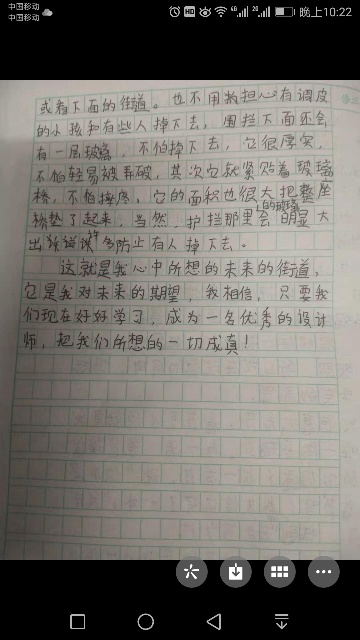 中国移动
中国移动
HD
4G
2G
晚上10:22
或看下面的街道。也不用担心有调皮
的小孩和有些人掉下去，围拦下面还会
有一层玻璃，不怕掉下去，它很厚实，
不怕轻易被弄破，其次它就紧贴着玻璃
桥，不怕挨疼，它的面积也很大把整座
的玻璃
桥垫了起来，当然，护拦那里会明显大
出许多防止有人掉下去。
这就是我心中所想的未来的街道，
它是我对未来的期望，我相信，只要我
们现在好好学习，成为一名优秀的设计
师，把我们所想的一切成真！